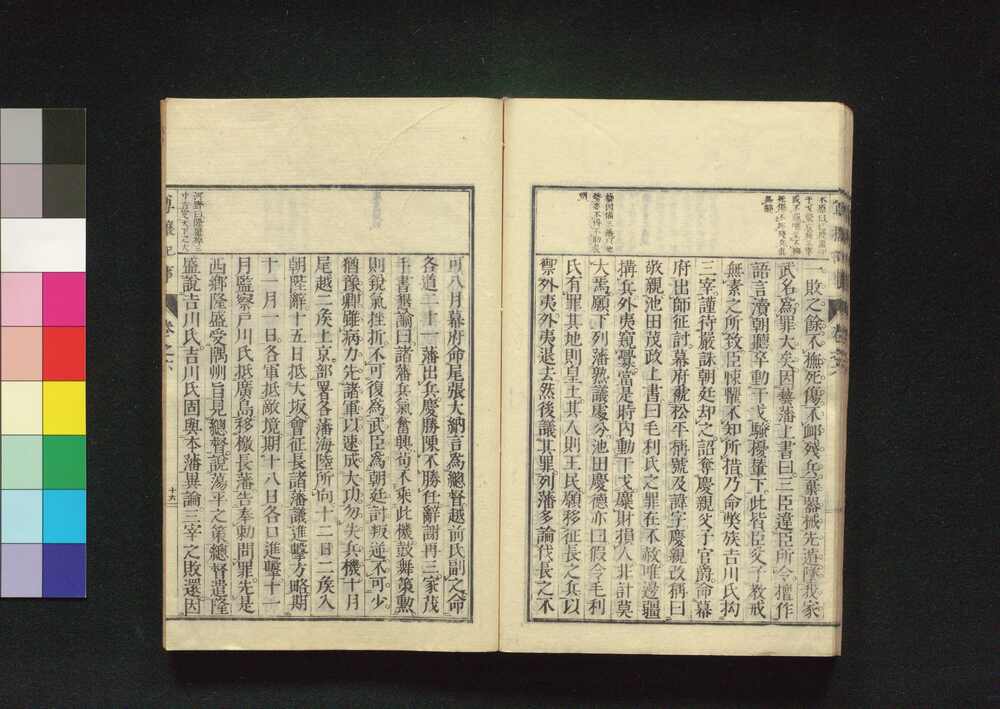 一敗之餘不撫死傷不卹殘兵棄器械先遁墜我家
武名爲罪大矣因藝藩上書曰三臣違臣所令擅作
語言瀆朝聽卒動干戈騷擾輦下此皆臣父子教戒
無素之所致臣悚懼不知所措乃命弊族吉川氏拘
三宰謹待嚴誅朝廷却之詔奪慶親父子官爵命幕
府出師征討幕府褫松平稱號及諱字慶親改稱曰
敬親池田茂政上書曰毛利氏之罪在不赦唯邊疆
搆兵外夷窺釁當是時內動干戈糜財損人非計莫
大焉願下列藩熟議處分池田慶德亦曰假令毛利
氏有罪其地則皇土其人則王民願移征長之兵以
禦外夷外夷退去然後議其罪列藩多論伐長之不
可八月幕府命尾張大納言爲總督越前氏副之命
各道二十一藩出兵慶勝陳不勝任辭謝再三家茂
手書懇諭曰諸藩兵氣奮興苟不乘此機鼓舞策勲
則銳氣挫折不可復爲武臣爲朝廷討叛逆不可少
猶豫卿雖病力先諸軍以速成大功勿失兵機十月
尾越二矦上京部署各藩海陸所向十二日二矦入
朝陛辭十五日抵大坂會征長諸藩議進擊方略期
十一月一日各軍抵敵境期十八日各口進擊十一
月監察戸川氏抵廣島移檄長藩告奉勅問罪先是
西鄉隆盛受隅州旨見總督說蕩平之策總督遣隆
盛說吉川氏吉川氏固與本藩異論三宰之敗還因
十六